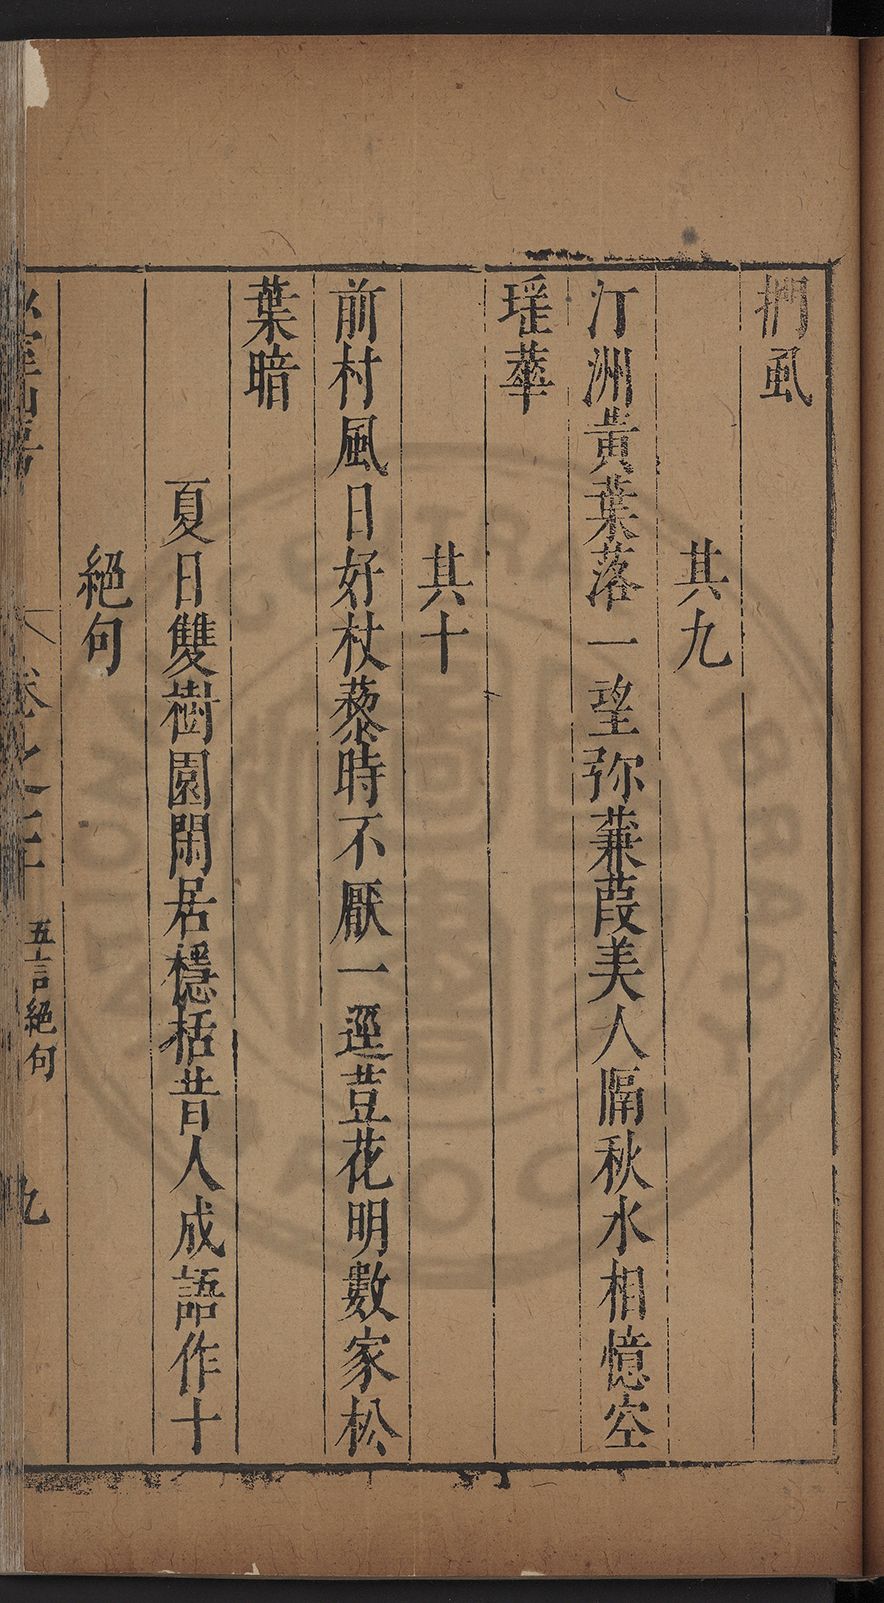 捫虱
其九
汀洲黃葉落一望弥蒹葭美人隔秋水相憶空
瑤華
其十
前村風日好杖藜時不厭一逕荳花明數家松
葉暗
夏日雙樹園閑居檃栝昔人成語作十
絕句
卷之
五言絕句
九